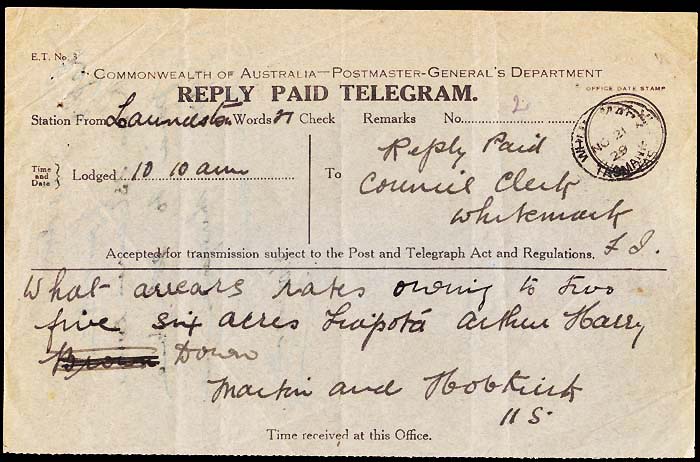 E.T. No. 3
COMMONWEALTH OF AUSTRALIA—POSTMASTER-GENERAL'S DEPARTMENT
REPLY PAID TELEGRAM.
OFFICE DATE STAMP
Station From Launceston Words 21 Check Remarks No. 2
WHITEMARK
NO 21
29
TASMANIA
Time and Date } Lodged 10 10 am To
Reply Paid
Council Clerk
Whitemark
F I.
Accepted for transmission subject to the Post and Telegraph Act and Regulations.
What arrears rates owing to two
five six acres Arthur Harry
Brown Down
Martin and Hobkirk
11 5
Time received at this Office.